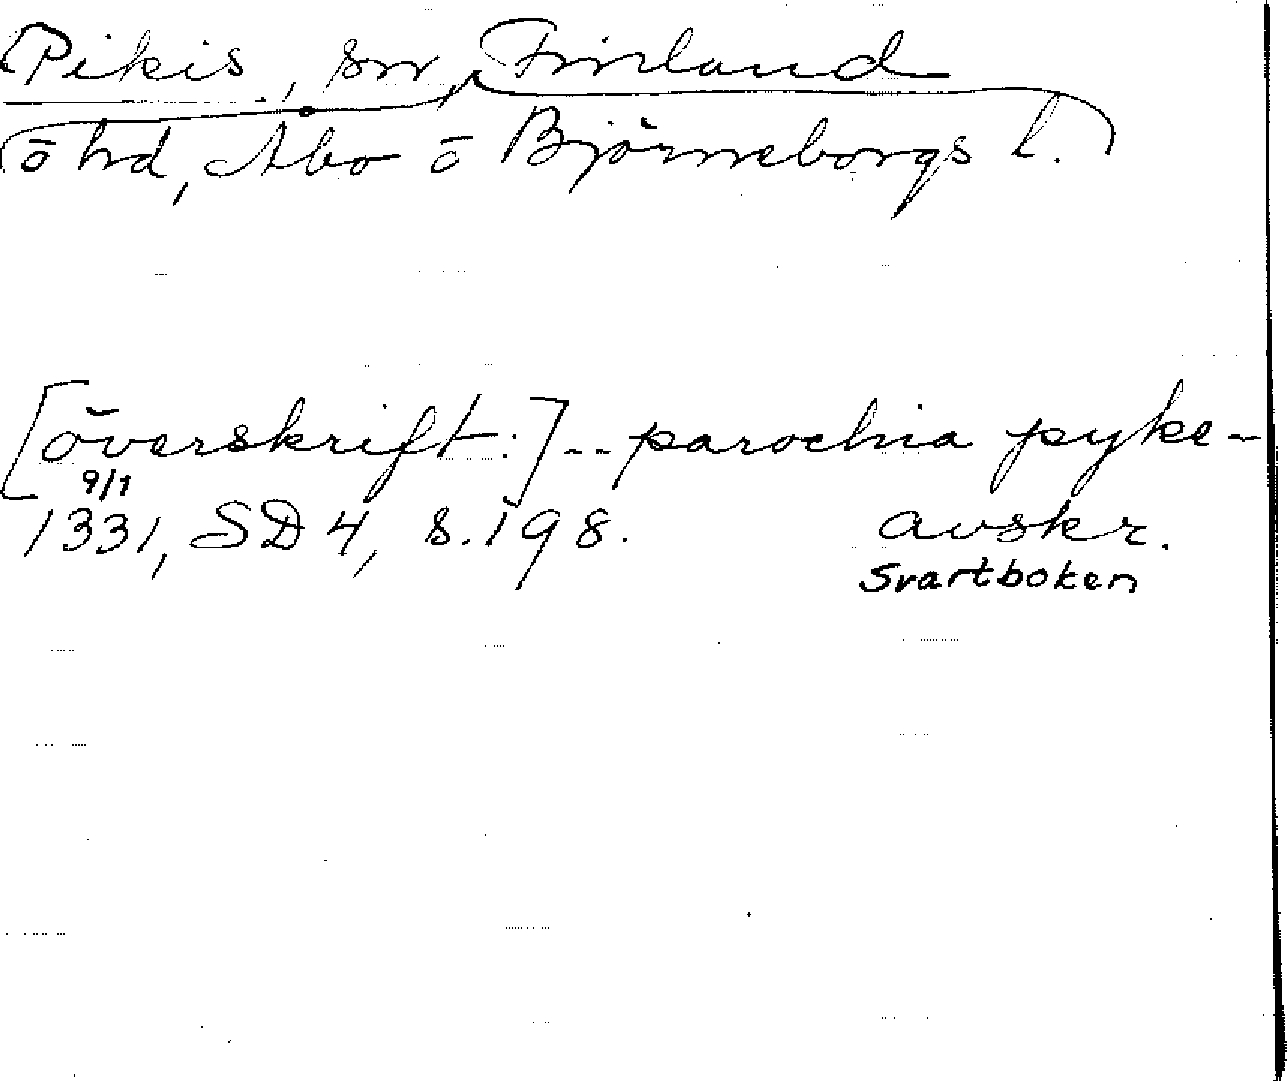 Pikis, sn, Finland
ō hd, Åbo ō Björneborgs l.
[överskrift:] -- parochia pyke-
9/1
1331, SD 4, s. 198. avskr.
Svartboken